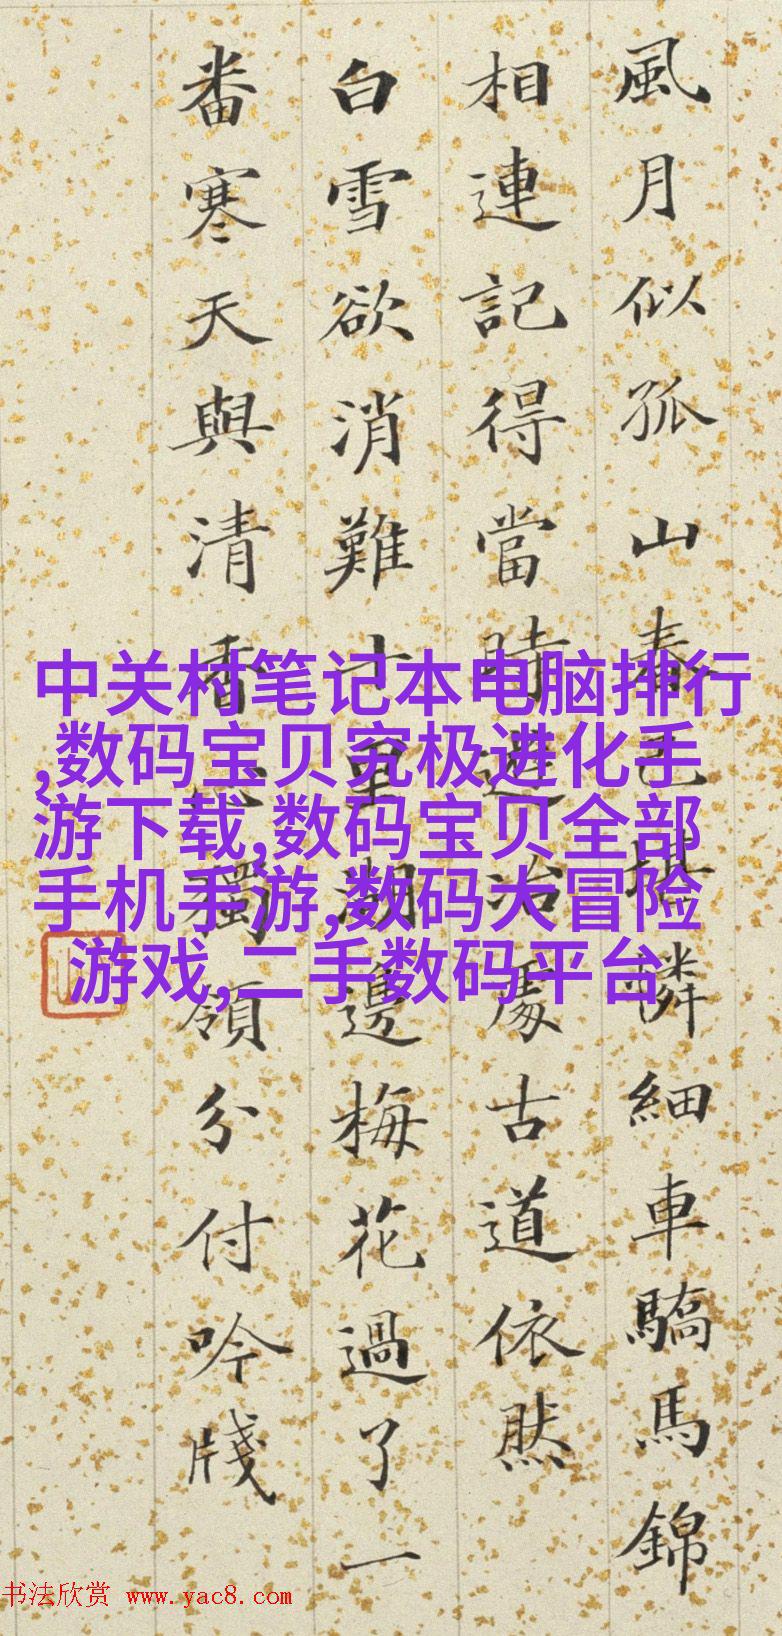 風月似孤山春已堪憐細車驕馬錦
相連記得當時遊冶處古道依然
白雪欲消難十里湖邊梅花過了一
番寒天與清香心獨領分付吟牋
中关村笔记本电脑排行
,数码宝贝究极进化手
游下载,数码宝贝全部
手机手游,数码大冒险
游戏,二手数码平台
书法欣赏 www.yac8.com